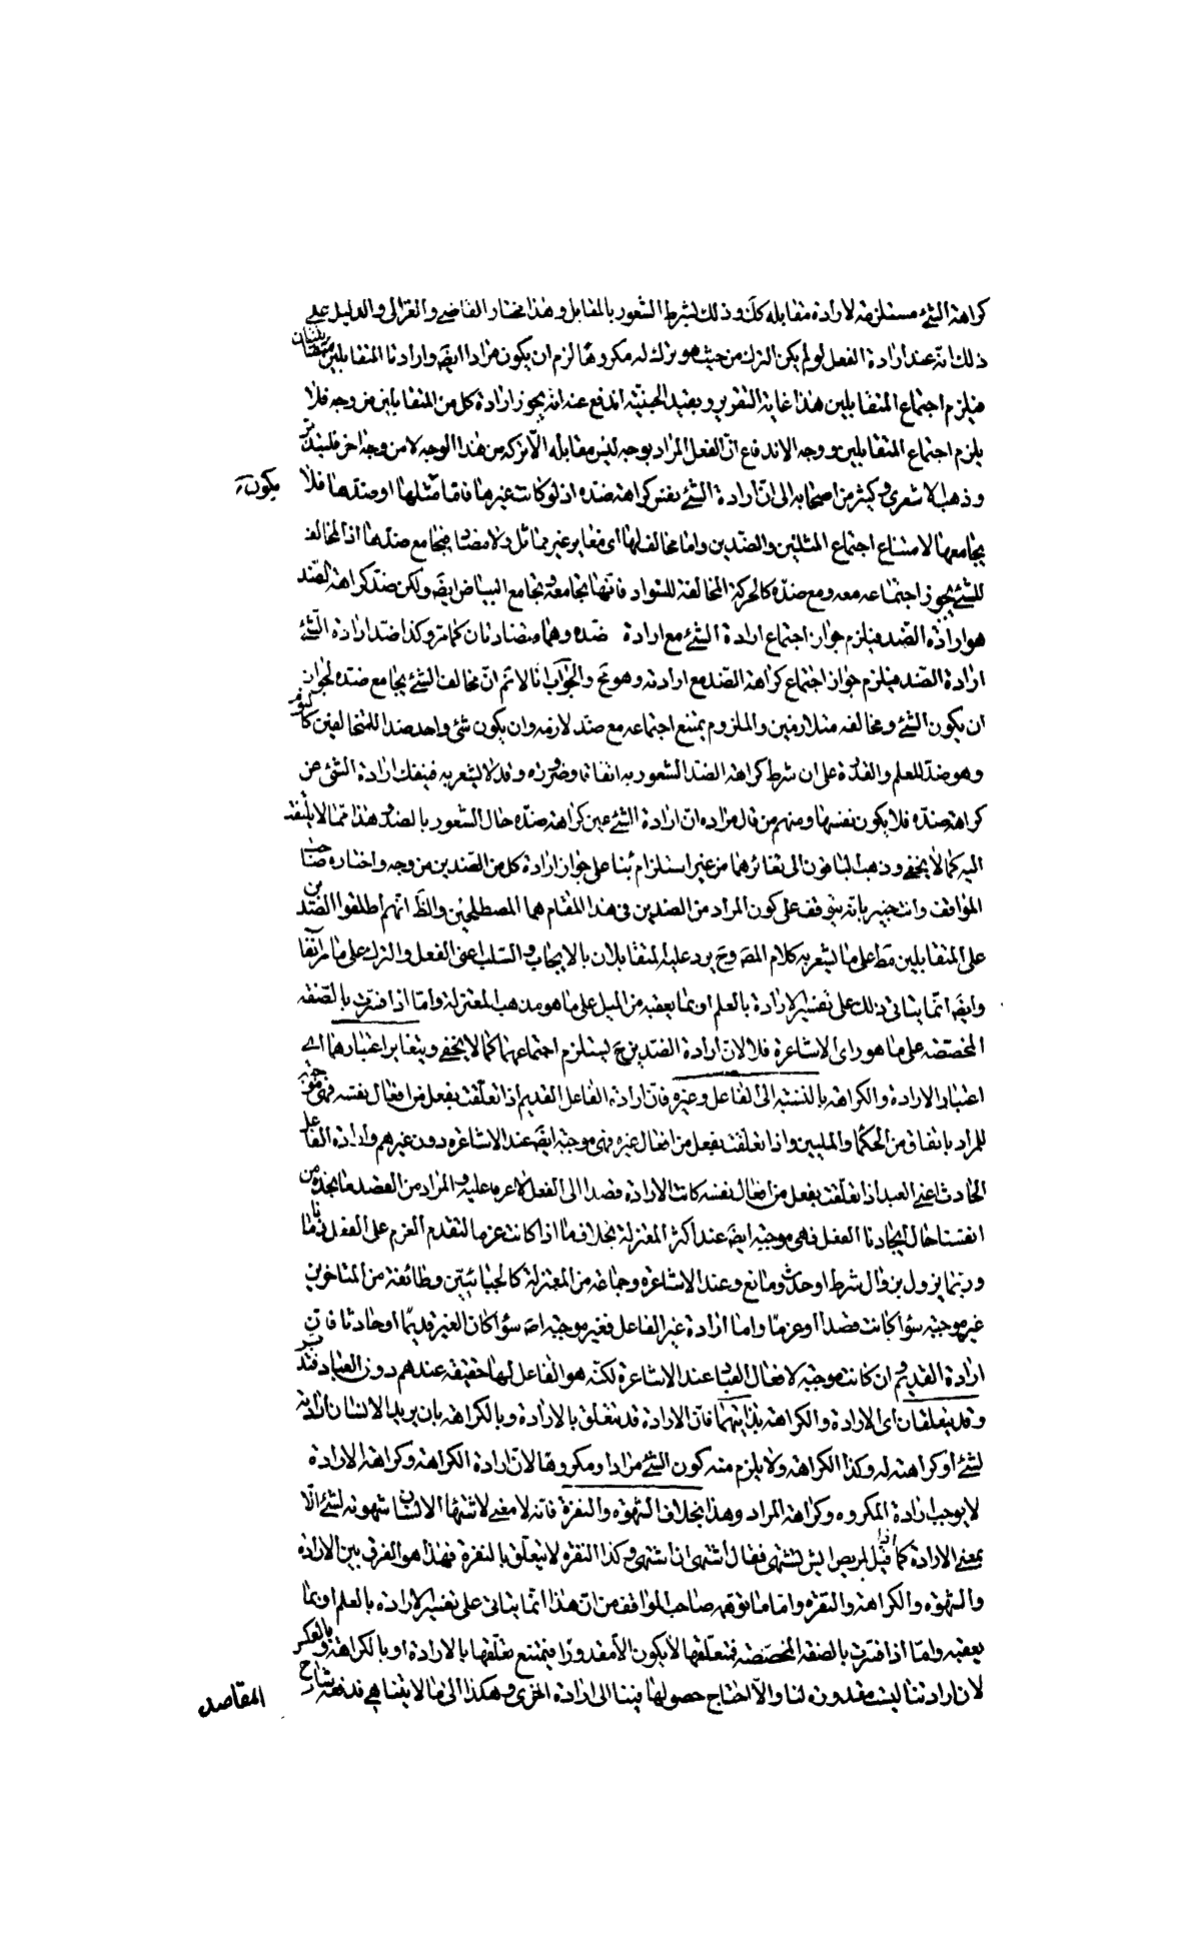 كراهة الشئ مستلزمة لارادة مقابله كك وذلك لشرط الشعور بالمقابل وهذا مختار القاضى والغزالى والدليل على
ذلك انه عند ارادة الفعل لو لم يكن الترك من حيث هو ترك له مكروها لزم ان يكون مرادا ايضَ وارادتا المتقابلين متقابلتان
فيلزم اجتماع المتقابلين هذا غاية التقرير وبقيد الحيثية اندفع عنه انه يجوز ارادة كل من المتقابلين من وجه فلا
يلزم اجتماع المتقابلين ووجه الاندفاع انّ الفعل المراد بوجه ليس مقابله الّا تركه من هذا الوجه لا من وجه اخر فليتدبر
وذهب الاشعرى وكثير من اصحابه الى انّ ارادة الشئ نفس كراهة ضده اذ لو كانت غيرها فاما مثلها او ضدها فلا
يكون
يجامعها لامتناع اجتماع المثلين والضدين واما مخالف لها اى مغاير غير مماثل ولا مضاد فيجامع ضدها اذ المخالف
للشئ يجوز اجتماعه معه ومع ضده كالحركة المخالفة للسواد فانها تجامعه وتجامع البياض ايضَ ولكن ضد كراهة الضد
هو ارادة الضد فيلزم جواز اجتماع ارادة الشئ مع ارادة ضده وهما متضادتان كما مر وكذا ضد ارادة الشئ
ارادة الضد فيلزم جواز اجتماع كراهة الضد مع ارادته وهو مح والجواب انا لا نم انّ مخالف الشئ يجامع ضده لجواز
ان يكون الشئ ومخالفه متلازمين والملزوم يمتنع اجتماعه مع ضد لازمه وان يكون شئ واحد ضدا للمتخالفين كالنوم
وهو ضد للعلم والقدرة على ان شرط كراهة الضد الشعور به اتفاقا وضرورة وقد لا يشعر به فينفك ارادة الشئ عن
كراهة ضده فلا يكون نفسها ومنهم من قال مراده ان ارادة الشئ عين كراهة ضده حال الشعور بالضد وهذا مما لا يلتفت
اليه كما لا يخفى وذهب الباقون الى تغايرهما من غير استلزام بناء على جواز ارادة كل من الضدين من وجه واختاره صاحب
المواقف وانت خبير بانه يتوقف على كون المراد من الضدين فى هذا المقام هما المصطلحين والظَ انهم اطلقوا الضدين
على المتقابلين مط على ما يشعر به كلام المصَ وح يرد عليه المتقابلان بالايجاب والسلب اعنى الفعل والترك على ما مر آنفا
وايضَ انما يتاتى ذلك على تفسير الارادة بالعلم او بما يعقبه من الميل على ما هو مذهب المعتزلة واما اذا فسرت بالصفة
المخصّصة على ما هو راى الاشاعرة فلا لان ارادة الضدين ح يستلزم اجتماعهما كما لا يخفى ويتغاير اعتبارهما اى
اعتبار الارادة والكراهة بالنسبة الى الفاعل وغيره فان ارادة الفاعل القديم اذا تعلقت بفعل من افعال نفسه فهى موجبة
للمراد باتفاق من الحكماء والمليين واذا تعلقت بفعل من افعال غيره فهى موجبة ايضَ عند الاشاعرة دون غيرهم وارادة الفاعل
الحادث اعنى العبد اذا تعلقت بفعل من افعال نفسه كانت الارادة قصدا الى الفعل لا عزما عليه والمراد من القصد ما نجده من
انفسنا حال ايجادنا الفعل فهى موجبة ايضَ عند اكثر المعتزلة بخلاف ما اذا كانت عزما لتقدم العزم على الفعل زمانا
وربما يزول بزوال شرط او حدوث مانع وعند الاشاعرة وجماعة من المعتزلة كالجبائيين وطائفة من المتاخرين
غير موجبة سواء كانت قصدا او عزما واما ارادة غير الفاعل فغير موجبة اصَ سواء كان الغير قديما او حادثا فان
ارادة القديم وان كانت موجبة لافعال العباد عند الاشاعرة لكنه هو الفاعل لها حقيقة عندهم دون العباد فتدبر
وقد يتعلقان اى الارادة والكراهة بذاتيهما فان الارادة قد تتعلق بالارادة وبالكراهة بان يريد الانسان ارادته
لشئ او كراهته له وكذا الكراهة ولا يلزم منه كون الشئ مرادا ومكروها لان ارادة الكراهة وكراهة الارادة
لا يوجب ارادة المكروه وكراهة المراد وهذا بخلاف الشهوة والنفرة فانه لا معنى لاشتهاء الانسان شهوته لشئ الّا
بمعنى الارادة كما اذا قيل لمريض ايش تشتهى فقال اشتهى ان اشتهى وكذا النفرة لا يتعلق بالنفرة فهذا هو الفرق بين الارادة
والشهوة والكراهة والنفرة واما ما توهمه صاحب المواقف من ان هذا انما يتاتى على تفسير الارادة بالعلم او بما
يعقبه واما اذا فسرت بالصفة المخصّصة فمتعلقها لا يكون الا مقدورا فيمتنع تعلقها بالارادة او بالكراهة وبالعكس
لان ارادتنا ليست مقدورة لنا والا احتاج حصولها فينا الى ارادة اخرى وهكذا الى ما لا يتناهى فدفعه شارح
المقاصد